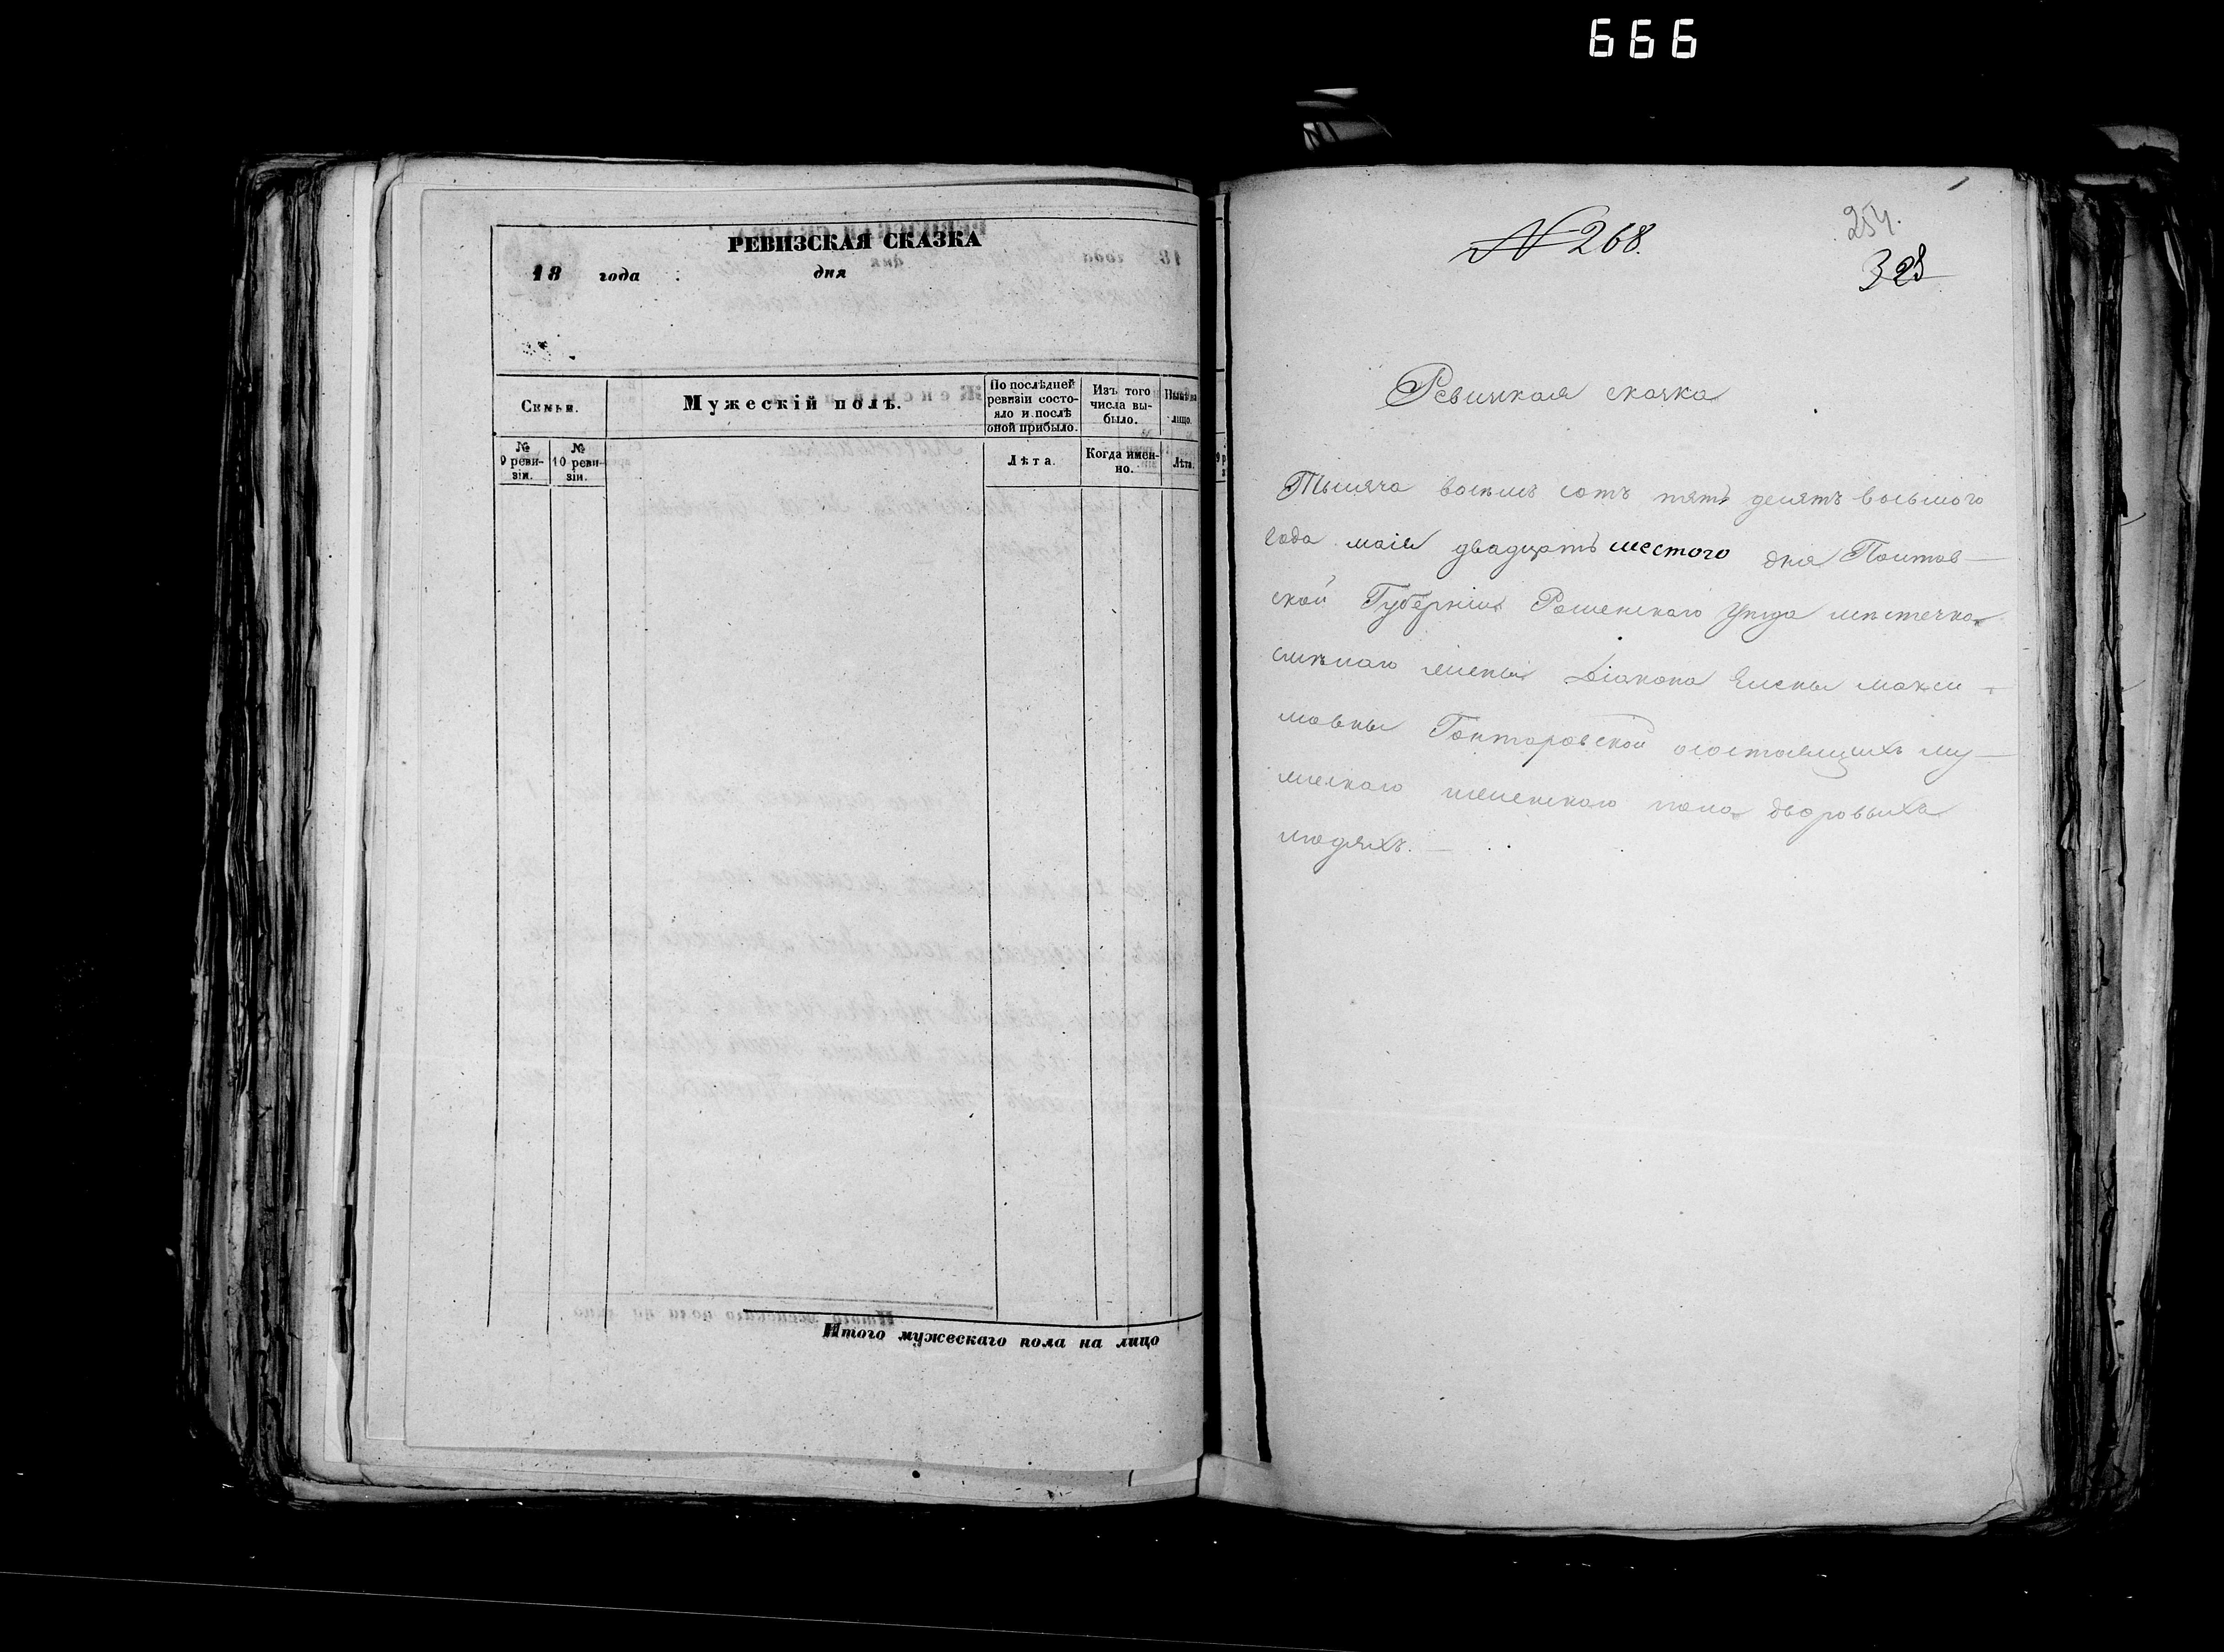 666
РЕВИЗСКАЯ СКАЗКА
18 года дня
Семьи.
Мужескій полъ.
По послѣдней ревизіи состояло и послѣ оной прибыло.
Изъ того числа выбыло.
лицо.
№ 9 ревизіи.
№ 10 ревизіи.
Лѣта.
Когда именно.
Лѣта.
Итого мужескаго пола на лицо
№ 268.
254.
328
Ревизкая сказка
Тысяча восемь сотъ пять десятъ восьмого
года маія двадцать шестого дня Полтав—
ской Губерніи Роменскаго уѣзда мѣстечка
Смѣлаго жены Діакона Елены Макси—
мовны Гонторовской осостоящихъ му—
жескаго женскаго пола дворовыхъ
людяхъ. —